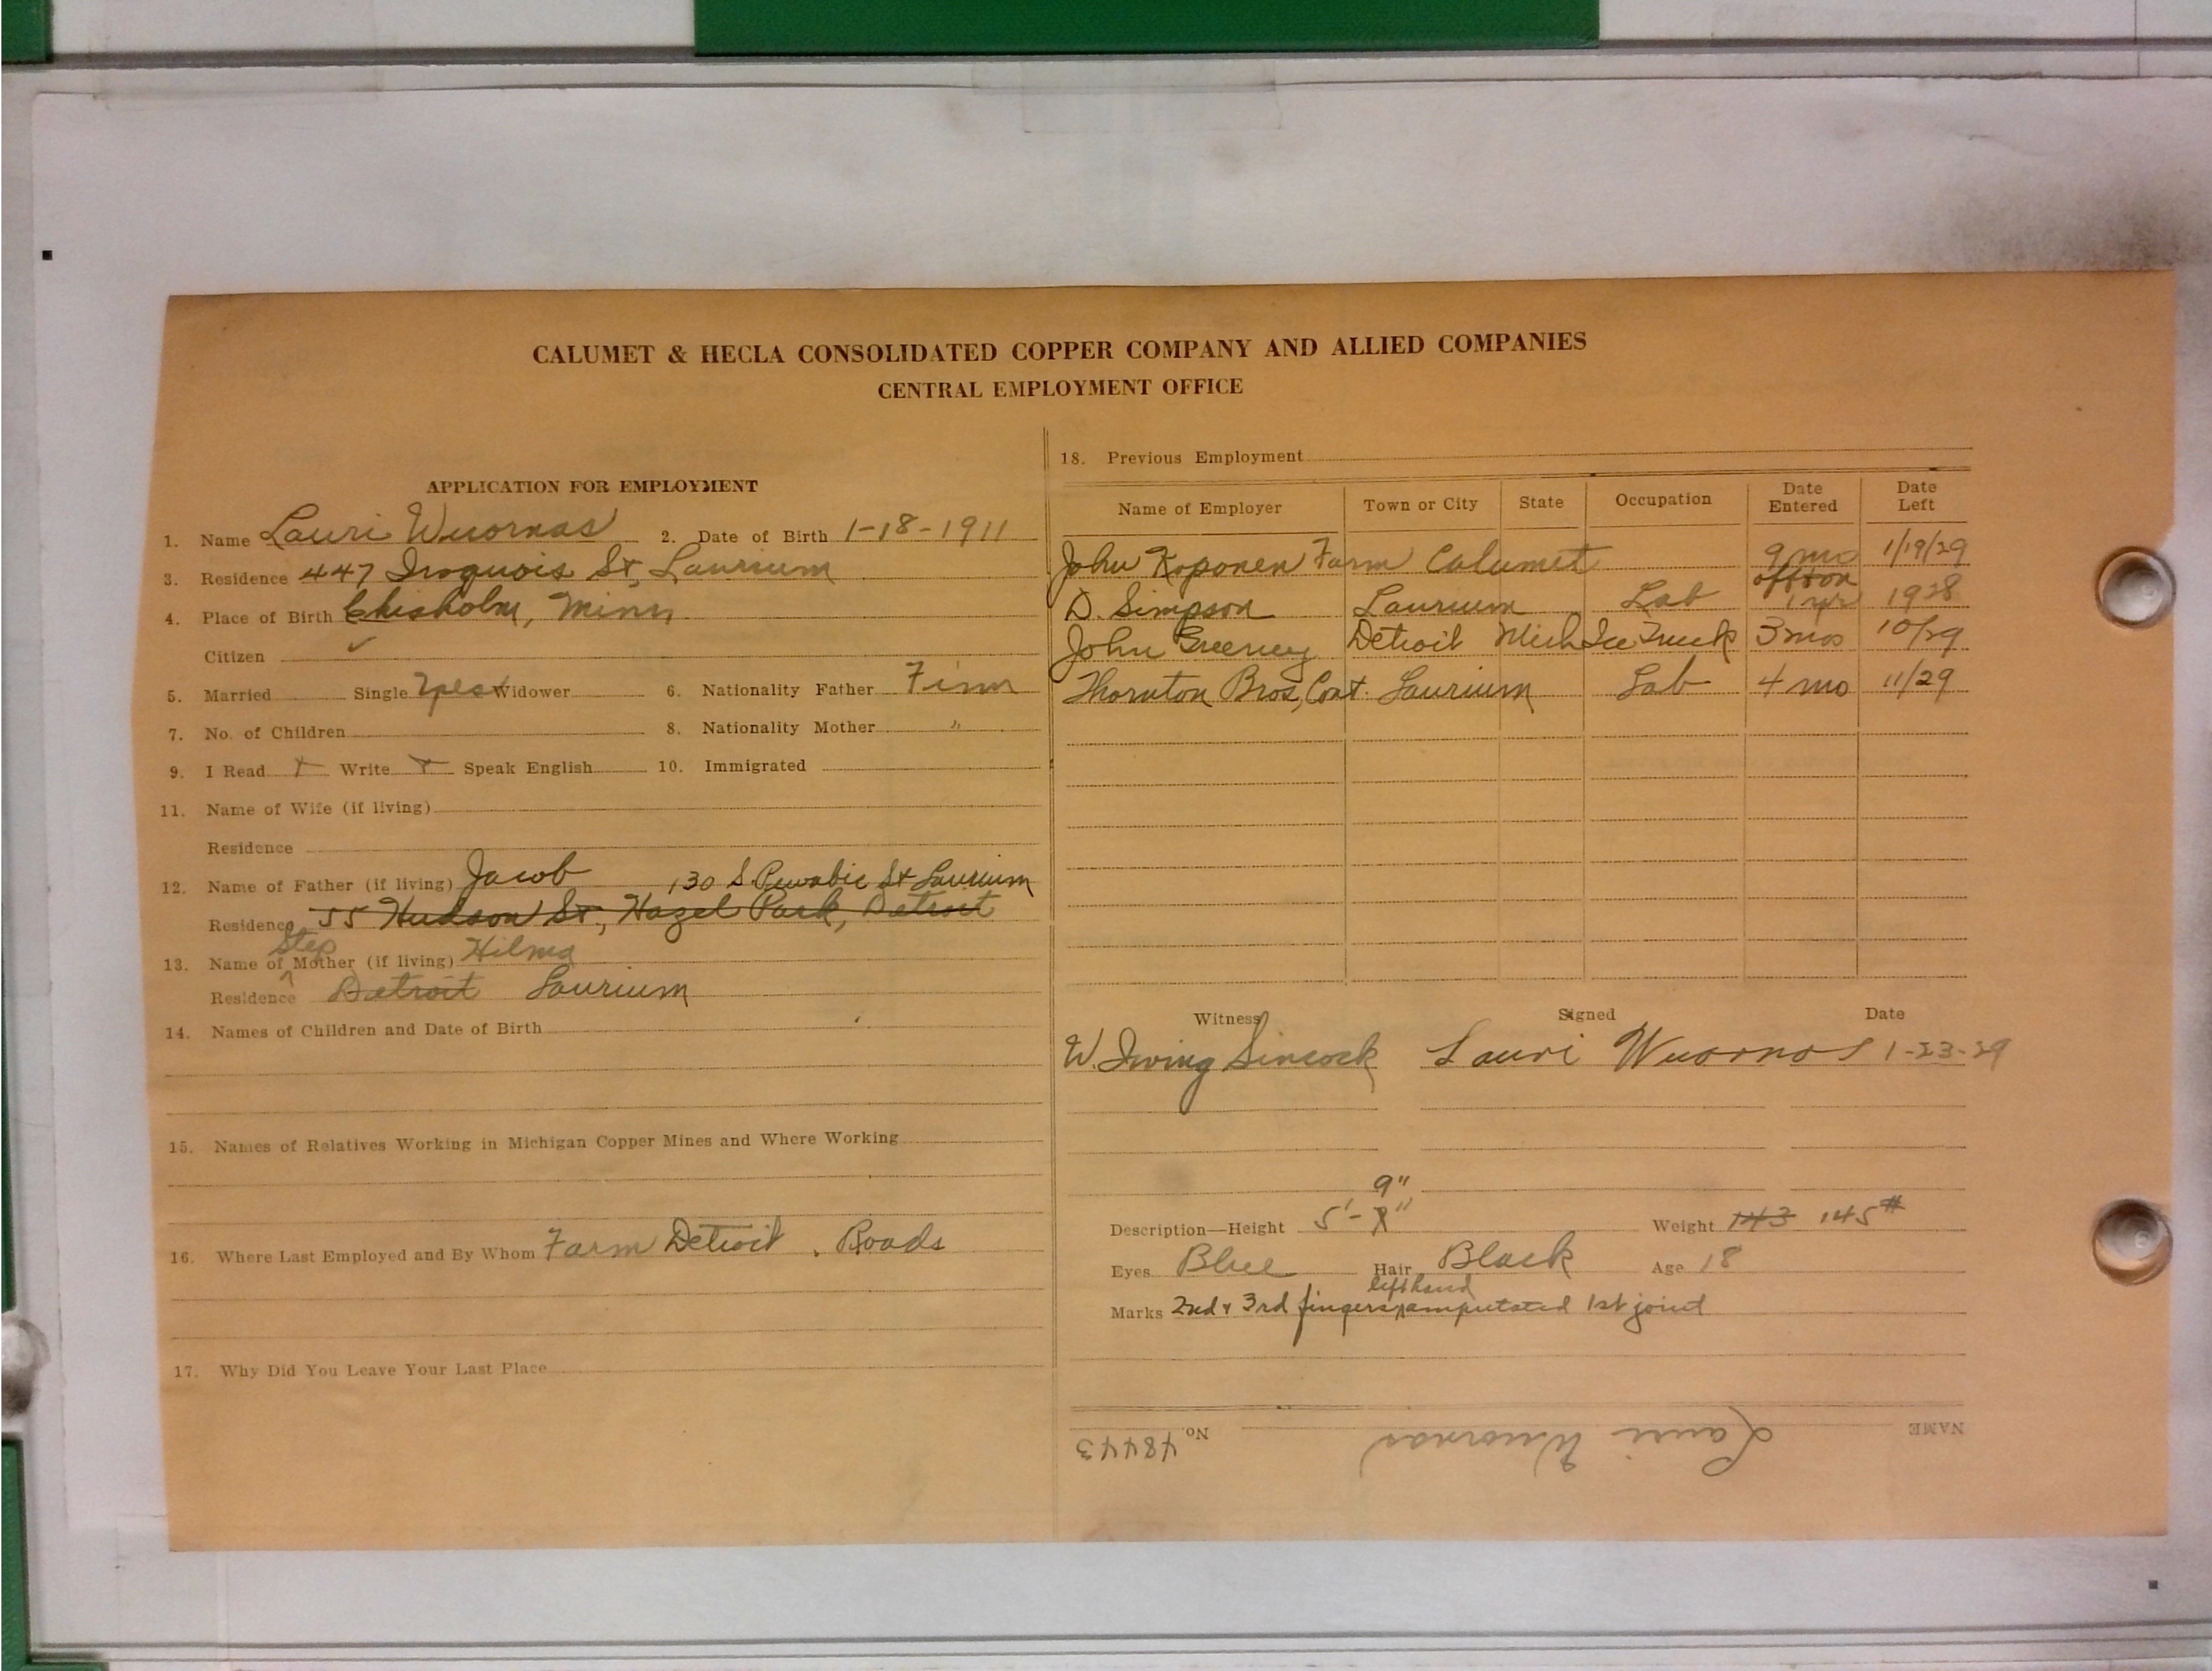 CALUMET & HECLA CONSOLIDATED COPPER COMPANY AND ALLIED COMPANIES
CENTRAL EMPLOYMENT OFFICE
APPLICATION FOR EMPLOYMENT
1. Name Lauri Wuornas 2. Date of Birth 1-18-1911
3. Residence 447 Iroquois St, Laurium
4. Place of Birth Chisholm, Minn
Citizen ✓
5. Married Single yes Widower 6. Nationality Father Finn
7. No. of Children 8. Nationality Mother "
9. I Read Write Speak English 10. Immigrated
11. Name of Wife (if living)
Residence
12. Name of Father (if living) Jacob 130 S. Pewabic St Laurium
Residence 55 Hudson St, Hazel Park, Detroit
Step
13. Name of Mother (if living) Hilma
Residence Detroit Laurium
14. Names of Children and Date of Birth
15. Names of Relatives Working in Michigan Copper Mines and Where Working
16. Where Last Employed and By Whom Farm Detroit . Roads
17. Why Did You Leave Your Last Place
18. Previous Employment
Name of Employer Town or City State Occupation Date Entered Date Left
John Koponen Farm Calumet 9 mo 1/19/29
off & on
D. Simpson Laurium Lab 1 yr 1928
John Greeney Detroit Mich Ice Truck 3 mos 10/29
Thornton Bros, Cont. Laurium Lab 4 mo 11/29
Witness Signed Date
W. Irving Sincock Lauri Wuornos 1-23-29
9"
Description—Height 5'- Weight 143 145#
Eyes Blue Hair Black Age 18
left hand
Marks 2nd & 3rd fingers amputated 1st joint
NAME Lauri Wuornas No. 48443